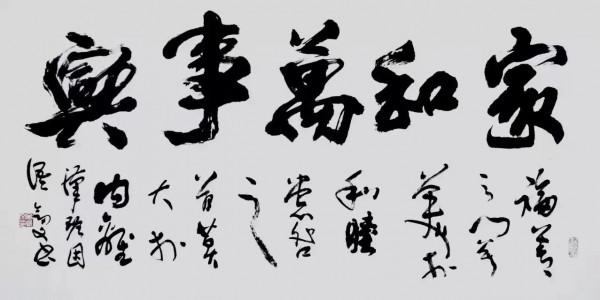 家和萬事興
福善
之門莫
美於
和睦
患咎
之
首莫
大於
内離
漢班固